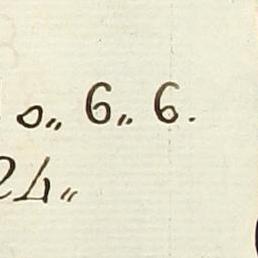 0„ 6„ 6.
24„